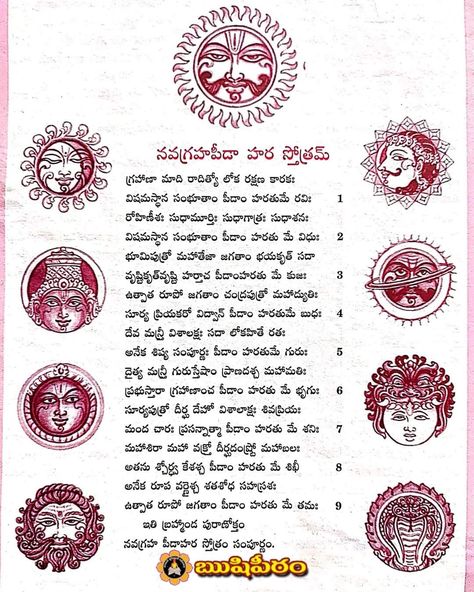 నవగ్రహపీడా హర స్తోత్రమ్
గ్రహాణా మాది రాదిత్యో లోక రక్షణ కారకః
విషమస్థాన సంభూతాం పీడాం హరతుమే రవిః 1
రోహిణీశః సుధామూర్తిః సుధాగాత్రః సుధాశనః
విషమస్థాన సంభూతాం పీడాం హరతు మే విధుః 2
భూమిపుత్రో మహాతేజా జగతాం భయకృత్ సదా
వృష్టికృత్‌వృష్టి హర్తాచ పీడాంహరతు మే కుజః 3
ఉత్పాత రూపో జగతాం చంద్రపుత్రో మహాద్యుతిః
సూర్య ప్రియకరో విద్వాన్ పీడాం హరతు మే బుధః 4
దేవ మన్త్రీ విశాలక్షః సదా లోకహితే రతః
అనేక శిష్య సంపూర్ణః పీడాం హరతుమే గురుః 5
దైత్య మన్త్రీ గురుస్తేషాం ప్రాణదశ్చ మహామతిః
ప్రభుస్తారా గ్రహాణాంచ పీడాం హరతు మే భృగుః 6
సూర్యపుత్రో దీర్ఘ దేహో విశాలాక్షః శివప్రియః
మంద చారః ప్రసన్నాత్మా పీడాం హరతు మే శనిః 7
మహాశిరా మహా వక్త్రో దీర్ఘదంష్ట్రో మహాబలః
అతను శ్చోర్ధ్వ కేశశ్చ పీడాం హరతు మే శిఖీ 8
అనేక రూప వర్ణైశ్చ శతశోధ సహస్రశః
ఉత్పాత రూపో జగతాం పీడాం హరతు మే తమః 9
ఇతి బ్రహ్మాండ పురాణోక్తం
నవగ్రహ పీడాహర స్తోత్రం సంపూర్ణం.
ఋషిపీఠం